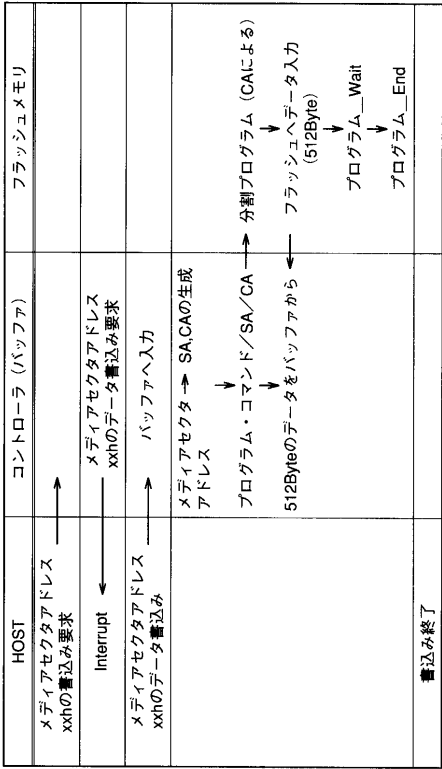 HOST
コントローラ (バッファ)
フラッシュメモリ
メディアセクタアドレス
xxhの書込み要求
Interrupt
メディアセクタアドレス
xxhのデータ書込み要求
メディアセクタアドレス
xxhのデータ書込み
バッファへ入力
メディアセクタ
アドレス
SA,CAの生成
プログラム・コマンド/SA/CA
分割プログラム (CAによる)
512Byteのデータをバッファから
フラッシュへデータ入力
(512Byte)
プログラム__Wait
プログラム__End
書込み終了